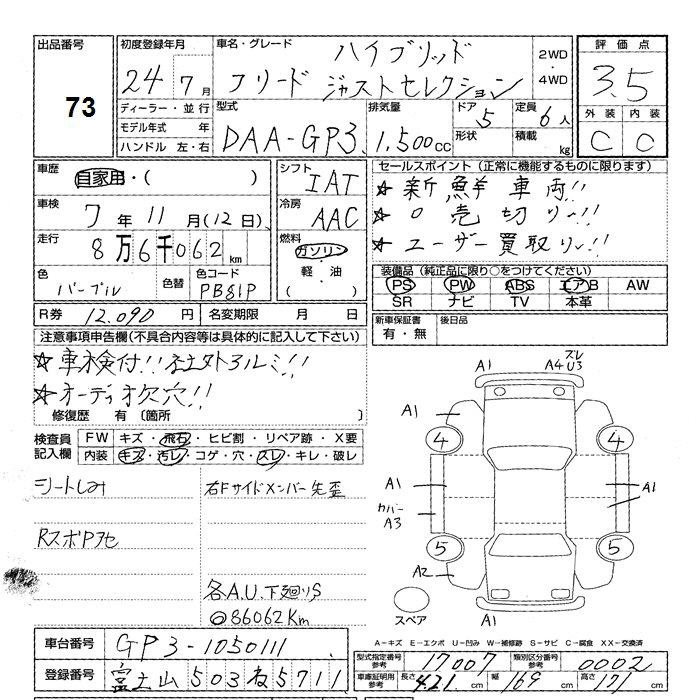 出品番号
73
初度登録年月
24年 7月
ディーラー・並行
モデル年式 年
ハンドル 左・右
車名・グレード
ハイブリッド
フリード ジャストセレクション
2WD
・
4WD
型式
DAA-GP3
排気量
1,500cc
ドア 5
形状
定員 6人
積載 kg
評価点
3.5
外装 内装
C C
車歴
自家用・( )
車検
7年11月(12日)
走行
8万6千062km
色
パープル
色替
色コード
PB81P
シフト
IAT
冷房
AAC
燃料
ガソリン
・
軽・油
( )
R券 12.090円
名変期限 月 日
セールスポイント(正常に機能するものに限ります)
☆新鮮車両!!
☆〇売切り〜!!
☆ユーザー買取り〜!!
装備品(純正品に限り○をつけてください)
PS PW ABS エアB AW
SR ナビ TV 本革
新車保証書
有・無
後日品
注意事項申告欄(不具合内容等は具体的に記入して下さい)
☆車検付!!社外アルミ!!
☆オーディオ欠穴!!
修復歴 有(箇所 )
検査員
記入欄
FW キズ・飛石・ヒビ割・リペア跡・X要
内装 キズ・汚レ・コゲ・穴・スレ・キレ・破レ
シートしみ
右Fサイドメンバー先歪
RスポP7セ
各A.U.下廻りS
◎86062Km
A1
A4 スレU3
A1
4
4
A1
カバーA3
A1
5
5
A2
スペア
A1
A−キズ E−エクボ U−凹み W−補修跡 S−サビ C−腐食 XX−交換済
車台番号 GP3-1050111
登録番号 富士山 503 ね 5711
型式指定番号
参考
17007
類別区分番号
参考
0002
車庫証明用
参考
長さ 421cm 幅 169cm 高さ 171cm